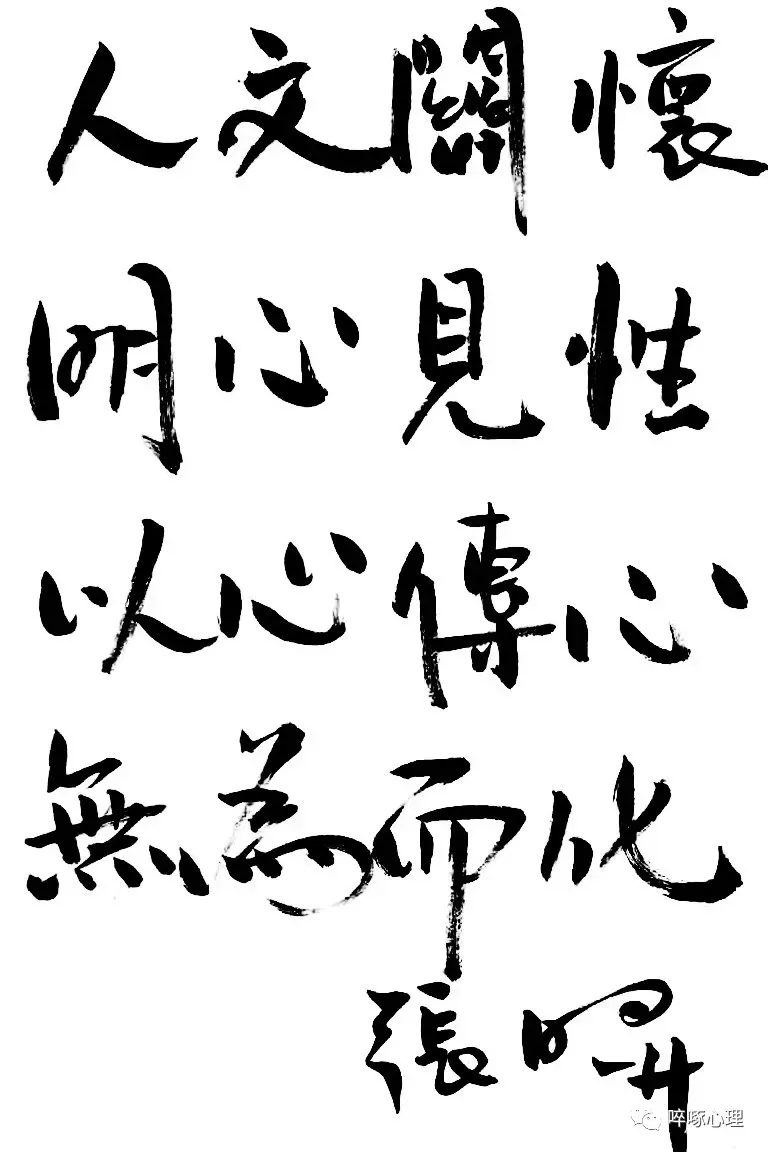 人文關懷
明心見性
以心傳心
無為而化
張暐
啐啄心理